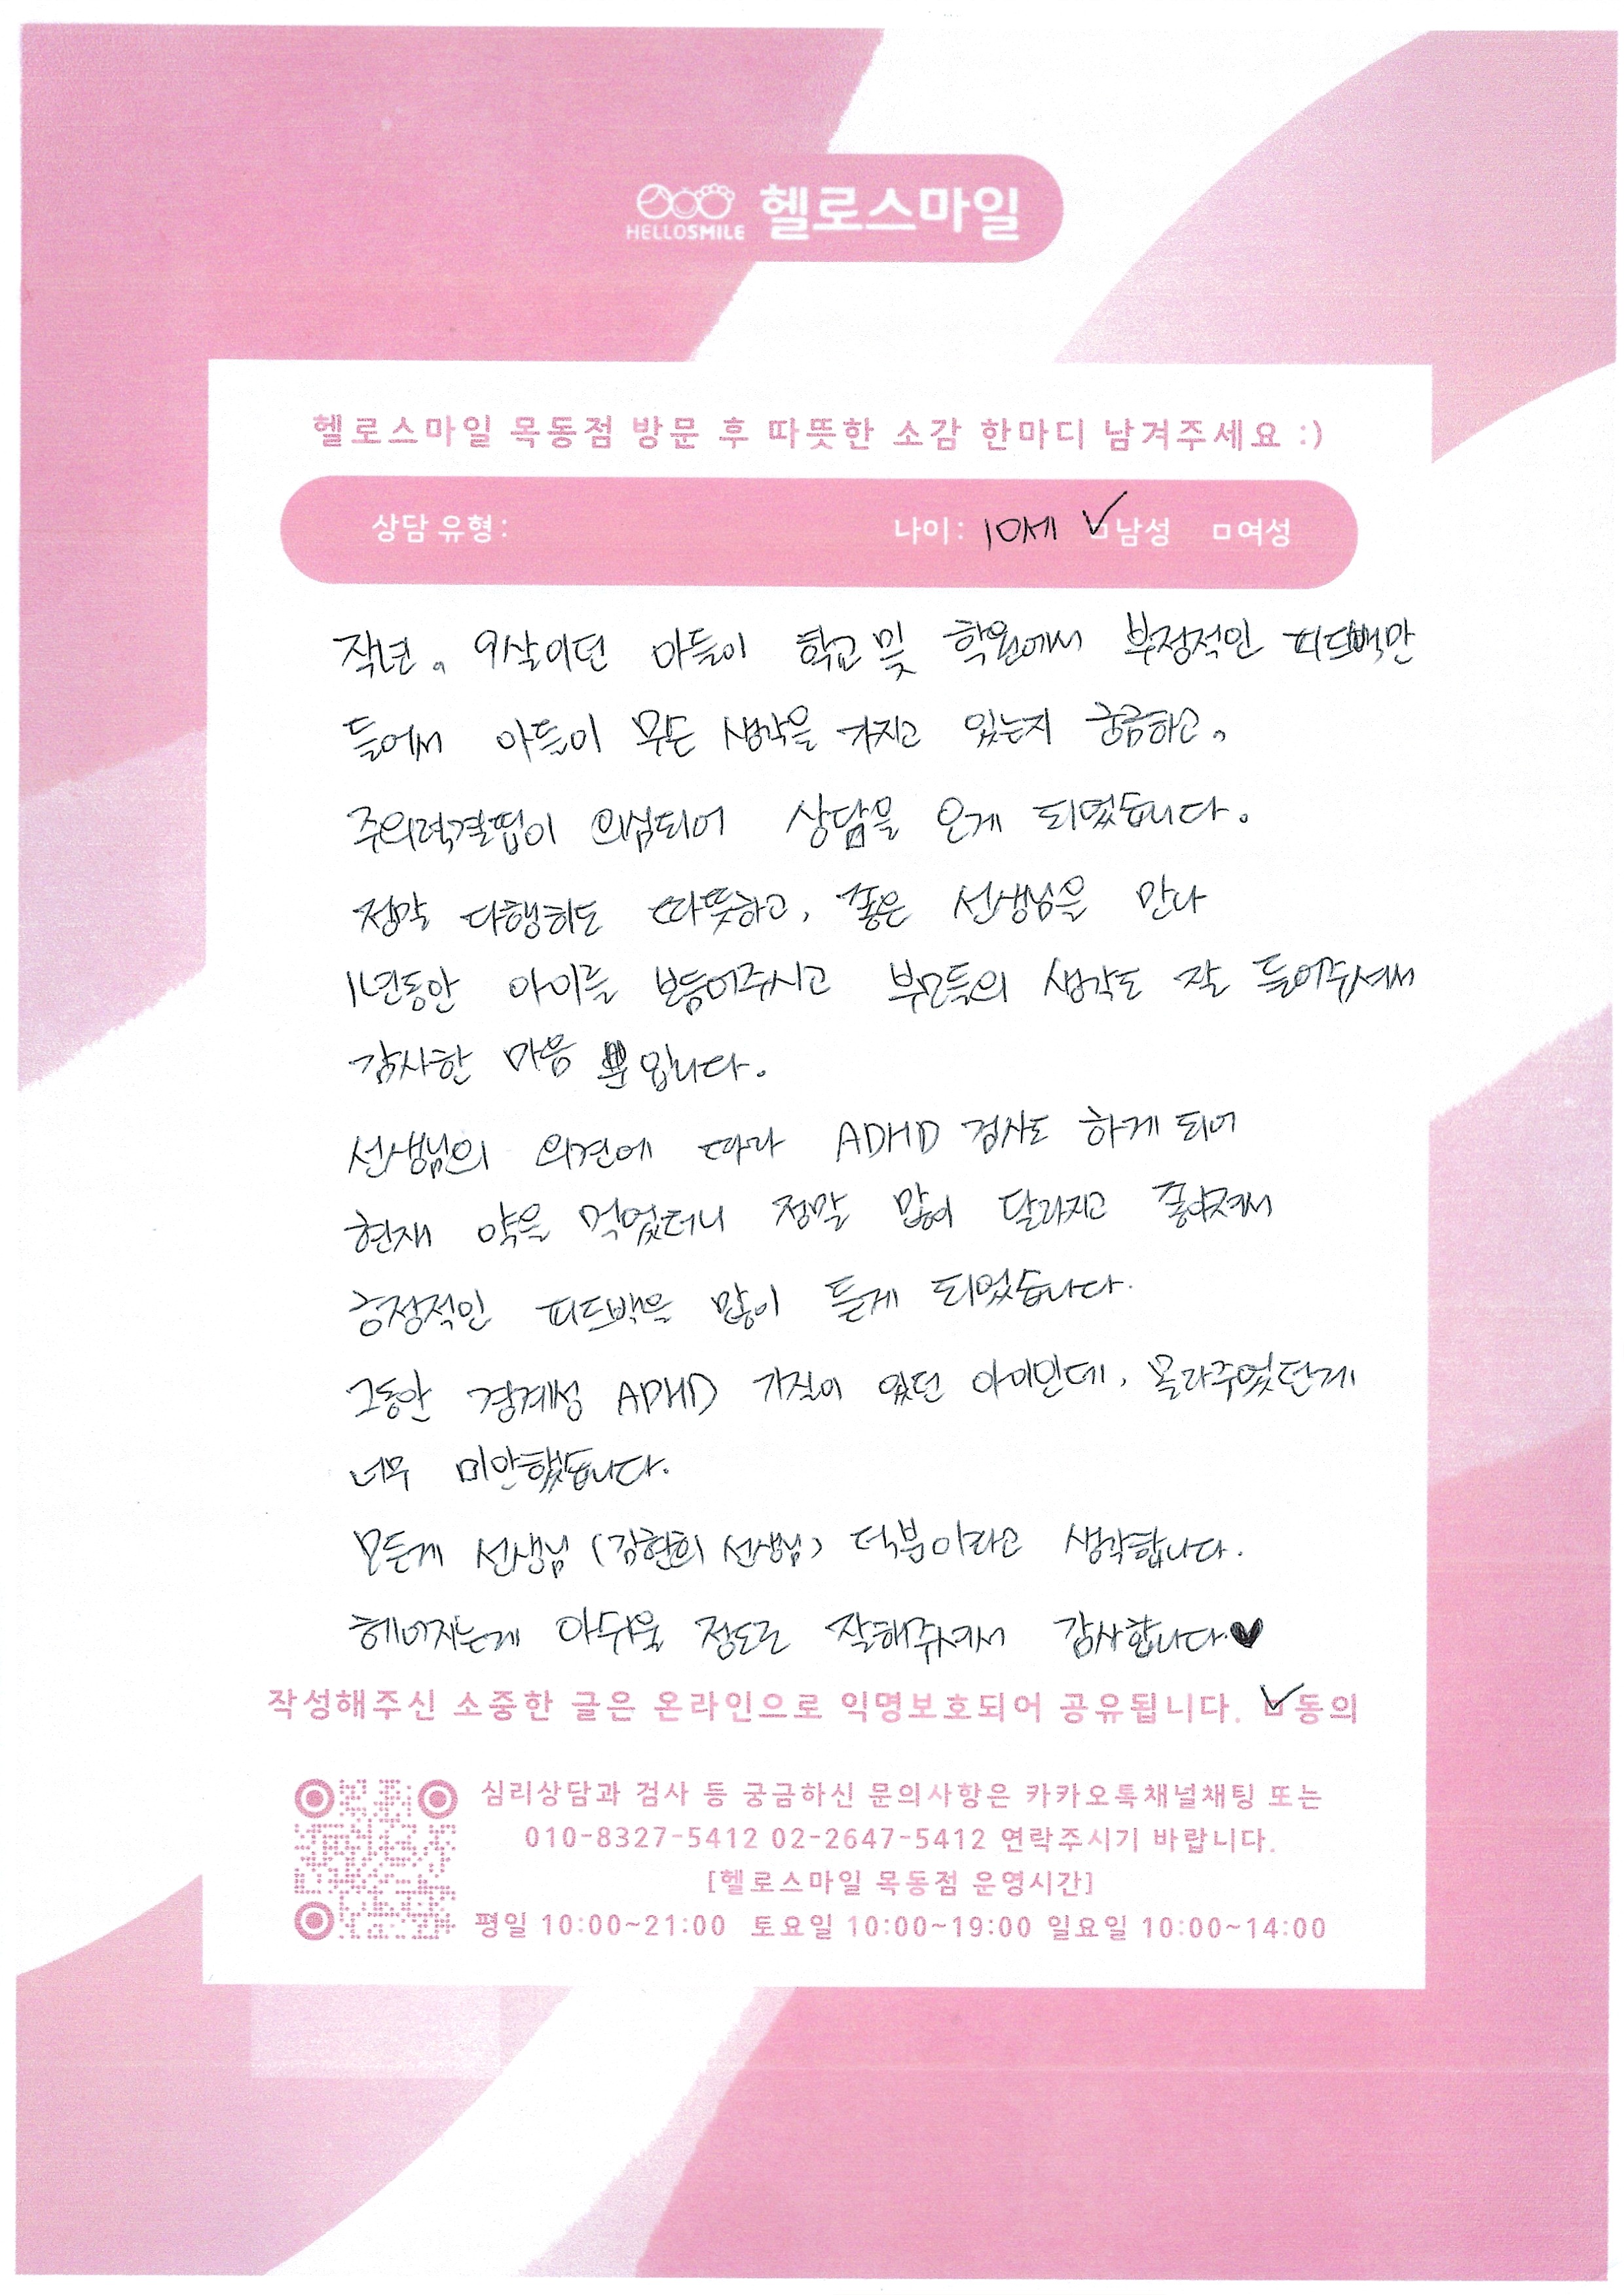 HELLOSMILE 헬로스마일
헬로스마일 목동점 방문 후 따뜻한 소감 한마디 남겨주세요 :)
상담 유형: 나이: 10세 ☑남성 □여성
작년. 9살이던 아들이 학교 및 학원에서 부정적인 피드백만
들어서 아들이 무슨 생각을 가지고 있는지 궁금하고.
주의력결핍이 의심되어 상담을 오게 되었습니다.
정말 다행히도 따뜻하고, 좋은 선생님을 만나
1년동안 아이를 보듬어주시고 부모들의 생각도 잘 들어주셔서
감사한 마음 뿐입니다.
선생님의 의견에 따라 ADHD 검사도 하게 되어
현재 약을 먹었더니 정말 많이 달라지고 좋아져서
긍정적인 피드백을 많이 듣게 되었습니다.
그동안 경계성 ADHD 기질이 있던 아이인데, 몰라주었단게
너무 미안했습니다.
모든게 선생님 (김현희 선생님) 덕분이라고 생각합니다.
헤어지는게 아쉬울 정도로 잘해주셔서 감사합니다♥
작성해주신 소중한 글은 온라인으로 익명보호되어 공유됩니다. ☑동의
심리상담과 검사 등 궁금하신 문의사항은 카카오톡채널채팅 또는
010-8327-5412 02-2647-5412 연락주시기 바랍니다.
[헬로스마일 목동점 운영시간]
평일 10:00~21:00 토요일 10:00~19:00 일요일 10:00~14:00